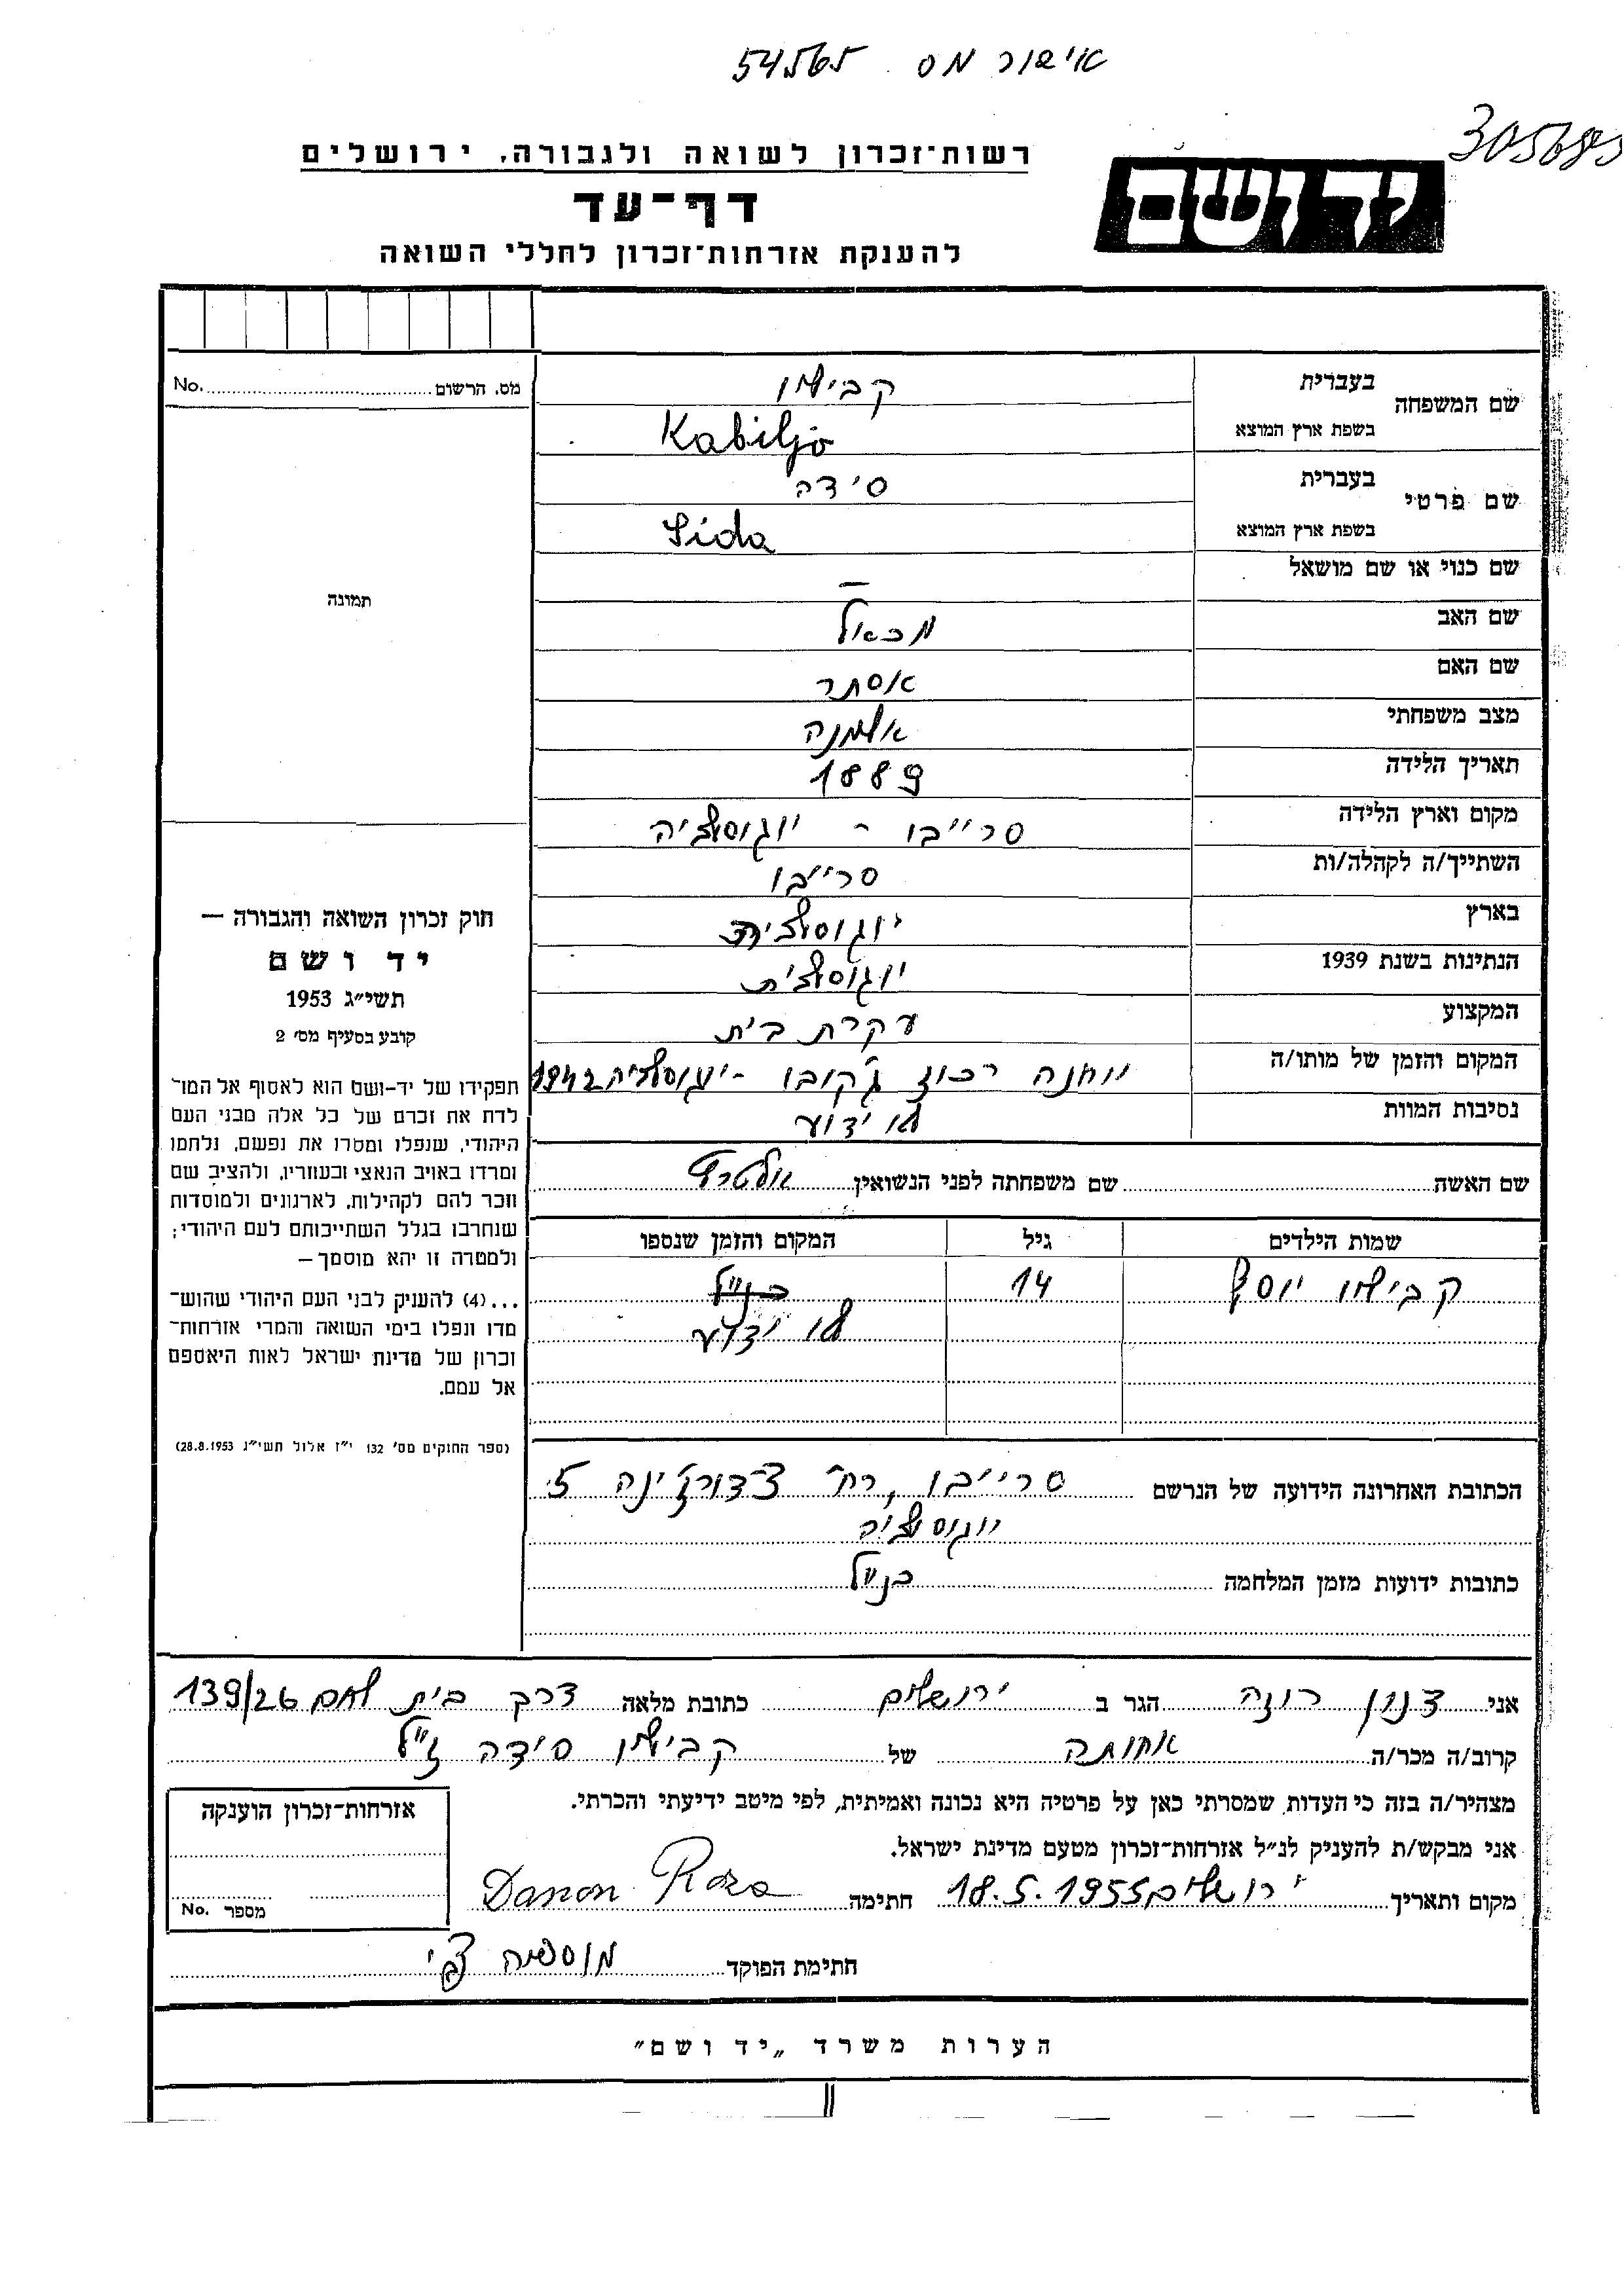 אישור מס. 54565
305685
רשות־זכרון לשואה ולגבורה, ירושלים
יד ושם
דף־עד
להענקת אזרחות־זכרון לחללי השואה
שם המשפחה בעברית קביליו
בשפת ארץ המוצא Kabiljo
שם פרטי בעברית סידה
בשפת ארץ המוצא Sida
שם כנוי או שם מושאל —
שם האב מכאל
שם האם אסתר
מצב משפחתי אלמנה
תאריך הלידה 1889
מקום וארץ הלידה סרייבו - יוגוסלביה
השתייך/ה לקהלה/ות סרייבו
בארץ יוגוסלביה
הנתינות בשנת 1939 יוגוסלבית
המקצוע עקרת בית
המקום והזמן של מותו/ה מחנה רכוז ג'קובו - יוגוסלביה 1942
נסיבות המוות לא ידוע
שם האשה שם משפחתה לפני הנשואין אלטרץ
שמות הילדים גיל המקום והזמן שנספו
קביליו יוסף 14 כנ״ל
לא ידוע
הכתובת האחרונה הידועה של הנרשם סרייבו, רח' 5
יוגוסלביה
כתובות ידועות מזמן המלחמה כנ״ל
מס. הרשום No.
תמונה
חוק זכרון השואה והגבורה —
יד ושם
תשי״ג 1953
קובע בסעיף מס׳ 2
תפקידו של יד-ושם הוא לאסוף אל המו־
לדת את זכרם של כל אלה מבני העם
היהודי, שנפלו ומסרו את נפשם, נלחמו
ומרדו באויב הנאצי ובעוזריו, ולהציב שם
וזכר להם לקהילות, לארגונים ולמוסדות
שנחרבו בגלל השתייכותם לעם היהודי;
ולמטרה זו יהא מוסמך —
...(4) להענין לבני העם היהודי שהוש־
מדו ונפלו בימי השואה והמרי אזרחות־
זכרון של מדינת ישראל לאות היאספם
אל עמם.
(ספר החוקים מס׳ 132 י״ז אלול תשי״ג 28.8.1953)
אני דנון רוזה הגר ב ירושלים כתובת מלאה דרך בית לחם 139/26
קרוב/ה מכר/ה אחותה של קבילו סידה ז״ל
מצהיר/ה בזה כי העדות שמסרתי כאן על פרטיה היא נכונה ואמיתית, לפי מיטב ידיעתי והכרתי.
אני מבקש/ת להעניק לנ״ל אזרחות־זכרון מטעם מדינת ישראל.
מקום ותאריך ירושלים 18.5.1955 חתימה Danon Roza
חתימת הפוקד
אזרחות־זכרון הוענקה
מספר No.
הערות משרד „יד ושם״